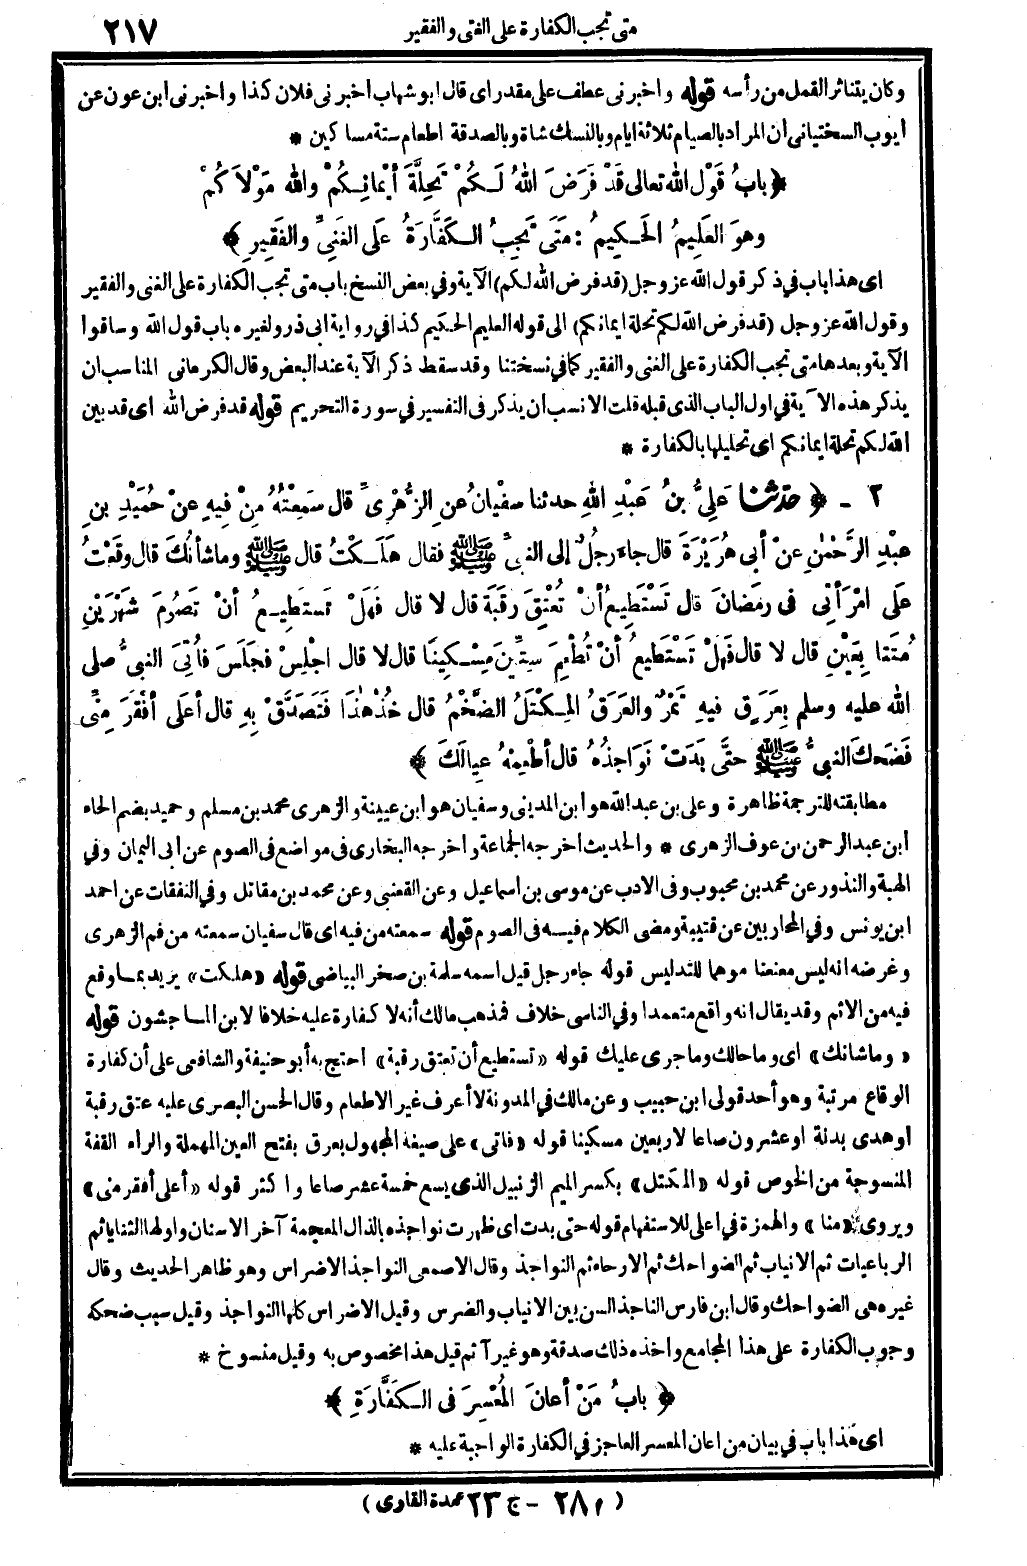 متى تجب الكفارة على الغنى والفقير ٢١٧
وكان يتناثر القمل من رأسه قوله واخبرنى عطف على مقدر اى قال ابو شهاب اخبرنى فلان كذا واخبرنى ابن عون عن
ايوب السختيانى ان المراد بالصيام ثلاثة ايام وبالنسك شاة وبالصدقة اطعام ستة مساكين *
﴿ بابُ قَوْلِ اللهِ تعالى قَدْ فَرَضَ اللهُ لَكُمْ تَحِلَّةَ أيْمانِكُمْ واللهُ مَوْلاَكُمْ
وهوَ العَلِيمُ الحَكِيمُ : مَتَى تَجِبُ الكَفَّارَةُ عَلَى الغَنِيِّ والفَقِيرِ ﴾
اى هذا باب في ذكر قول الله عز وجل (قد فرض الله لكم) الآية وفي بعض النسخ باب متى تجب الكفارة على الغنى والفقير
وقول الله عز وجل (قد فرض الله لكم تحلة ايمانكم) الى قوله العليم الحكيم كذا في رواية ابى ذر ولغيره باب قول الله وساقوا
الآية وبعدها متى تجب الكفارة على الغنى والفقير كما في نسختنا وقد سقط ذكر الآية عند البعض وقال الكرمانى المناسب ان
يذكر هذه الآية في اول الباب الذى قبله قلت الانسب ان يذكر فى التفسير في سورة التحريم قوله قد فرض الله اى قد بين
الله لكم تحلة ايمانكم اى تحليلها بالكفارة *
٢ - ﴿ حدثنا عَلِيُّ بنُ عَبْدِ اللهِ حدثنا سفْيانُ عنِ الزُّهْرِىِّ قال سَمِعْتُهُ مِنْ فِيهِ عنْ حُمَيْدِ بنِ
عبْدِ الرَّحْمٰنِ عنْ أبى هُرَيْرَةَ قال جاءَ رجُلٌ إلى النبىِّ ﷺ فقال هَلَكْتُ قال ﷺ وماشأْنُكَ قال وقَعْتُ
عَلَى امْرَأتِى فى رمَضانَ قال تَسْتَطِيعُ أنْ تُعْتِقَ رقَبَةً قال لا قال فهَلْ تَستطِيعُ أنْ تَصُومَ شَهْرَيْنِ
مُتَتا بِعَيْنِ قال لا قال فهَلْ تَسْتَطيعُ أنْ تُطْعِمَ سِتِّينَ مِسْكِينًا قال لا قال اجْلِسْ فجَلَسَ فأُتِىَ النبىُّ صلى
الله عليه وسلم بِعَرَقٍ فيهِ تَمْرٌ والعَرَقُ المِكْتَلُ الضَّخْمُ قال خُذْ هٰذَا فَتَصَدَّقْ بِهِ قال أعلَى أفْقَرَ مِنِّى
فَضَحكَ النبىُّ ﷺ حتَّى بَدَتْ نَوَاجذُهُ قال أطْعِمْهُ عِيالَكَ ﴾
مطابقته للترجمة ظاهرة وعلى بن عبد الله هو ابن المدينى وسفيان هو ابن عيينة والزهرى محمد بن مسلم وحميد بضم الحاء
ابن عبد الرحمن بن عوف الزهرى * والحديث اخرجه الجماعة واخرجه البخارى فى مواضع فى الصوم عن أبى اليمان وفي
الهبة والنذور عن محمد بن محبوب وفى الادب عن موسى بن اسماعيل وعن القعنبى وعن محمد بن مقاتل وفي النفقات عن احمد
ابن يونس وفي المحاربين عن قتيبة ومضى الكلام فيه فى الصوم قوله سمعته من فيه اى قال سفيان سمعته من فم الزهرى
وغرضه انه ليس معنعنا موهما للتدليس قوله جاء رجل قيل اسمه سلمة بن صخر البياضى قوله «هلكت» يريد بما وقع
فيه من الاثم وقد يقال انه واقع متعمدا وفي الناسى خلاف فمذهب مالك أنه لا كفارة عليه خلافا لابن الماجشون قوله
«وماشانك» اى وما حالك وما جرى عليك قوله «تستطيع أن تعتق رقبة» احتج به أبو حنيفة والشافعى على أن كفارة
الوقاع مرتبة وهو أحد قولى ابن حبيب وعن مالك في المدونة لا أعرف غير الاطعام وقال الحسن البصرى عليه عتق رقبة
اوهدى بدنة او عشرون صاعا لاربعين مسكينا قوله «فاتى» على صيغة المجهول بعرق بفتح العين المهملة والراء القفة
المنسوجة من الخوص قوله «المكتل» بكسر الميم الزنبيل الذى يسع خمسة عشر صاعا واكثر قوله «أعلى أفقر منى»
ويروى «منا» والهمزة في اعلى للاستفهام قوله حتى بدت اى ظهرت نواجذه بالذال المعجمة آخر الاسنان واولها الثنايا ثم
الرباعيات ثم الانياب ثم الضواحك ثم الارحاء ثم النواجذ وقال الاصمعى النواجذ الاضراس وهو ظاهر الحديث وقال
غيره هى الضواحك وقال ابن فارس الناجذ السن بين الانياب والضرس وقيل الاضراس كلها النواجذ وقيل سبب ضحكه
وجوب الكفارة على هذا المجامع واخذه ذلك صدقة وهو غير آثم قيل هذا مخصوص به وقيل منسوخ *
﴿ بابُ مَنْ أعانَ المُعْسِرَ فى الكَفَّارَةِ ﴾
اى هذا باب في بيان من اعان المعسر العاجز في الكفارة الواجبة عليه *
(م ٢٨ - ج ٢٣ عمدة القارى)